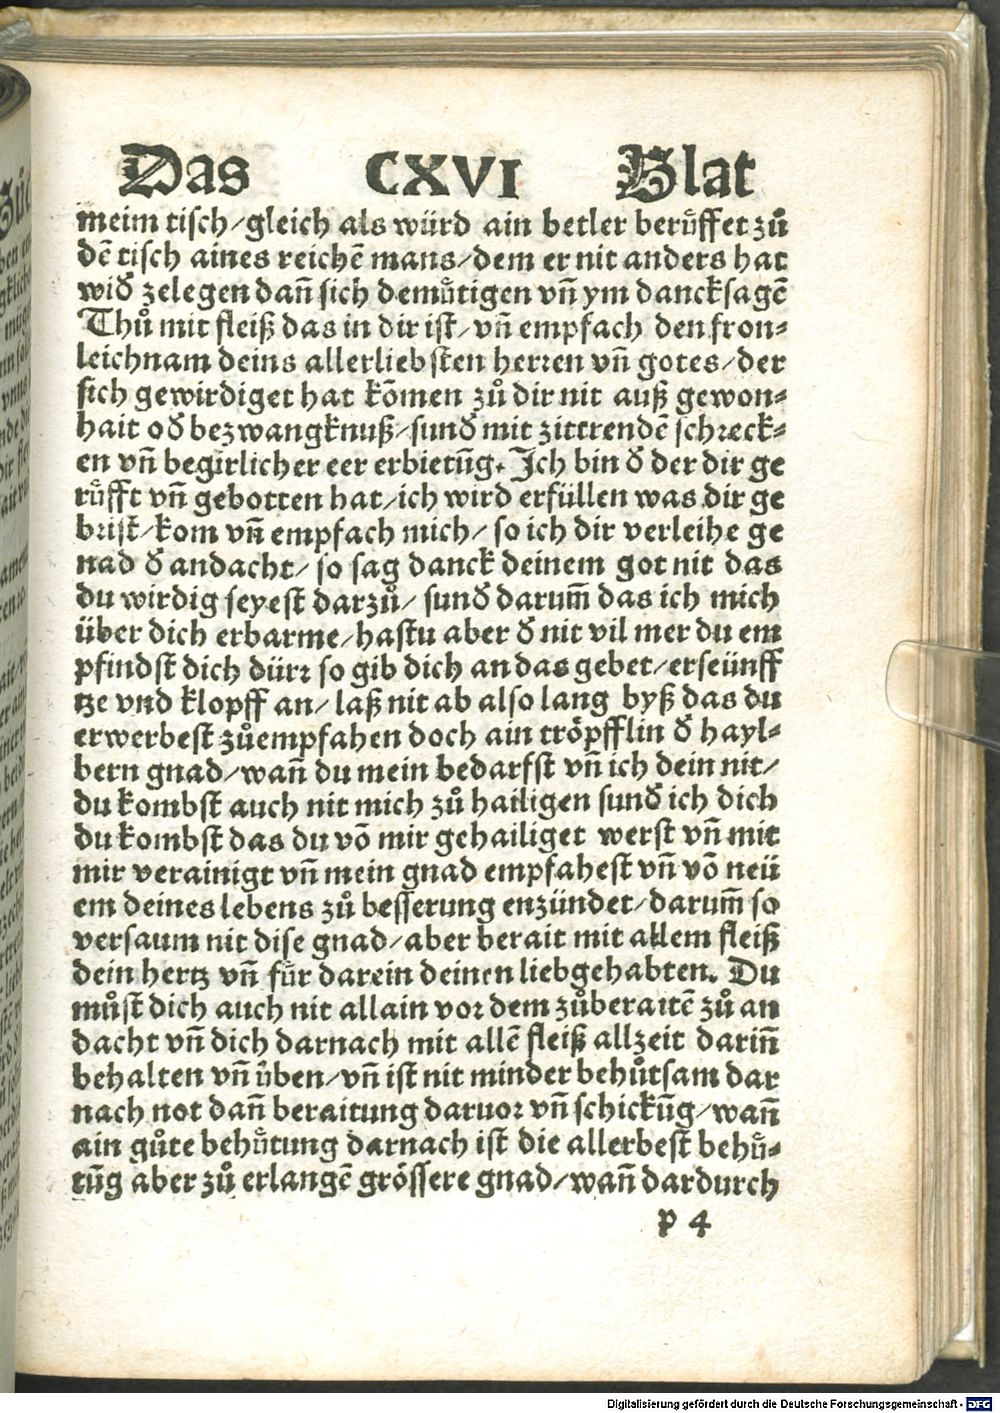 Das CXVI Blat
meim tisch/gleich als würd ain betler berůͤffet zů
dē tisch aines reichē mans/dem er nit anders hat
wiď zelegen dañ sich demuͤtigen vñ ym dancksagē
Thů mit fleiß das in dir ist/vñ empfach den fron⸗
leichnam deins allerliebsten herren vñ gotes/der
sich gewirdiget hat kōmen zů dir nit auß gewon⸗
hait oď bezwangknuß/sunď mit zittrendē schreck⸗
en vñ begirlicher eer erbietūg. Ich bin ď der dir ge
ruͤfft vñ gebotten hat/ich wird erfüllen was dir ge
brist/kom vñ empfach mich/so ich dir verleihe ge
nad ď andacht/so sag danck deinem got nit das
du wirdig seyest darzů/sunď darum̄ das ich mich
über dich erbarme/hastu aber ď nit vil mer du em
pfindst dich dürr so gib dich an das gebet/erseünff
tze vnd klopff an/laß nit ab also lang byß das du
erwerbest zůempfahen doch ain tröpfflin ď hayl⸗
bern gnad/wañ du mein bedarfst vñ ich dein nit/
du kombst auch nit mich zů hailigen sunď ich dich
du kombst das du vō mir gehailiget werst vñ mit
mir verainigt vñ mein gnad empfahest vñ vō neü
em deines lebens zů besserung enzündet/darum̄ so
versaum nit dise gnad/aber berait mit allem fleiß
dein hertz vñ fuͤr darein deinen liebgehabten. Du
můst dich auch nit allain vor dem zůberaitē zů an
dacht vñ dich darnach mit allē fleiß allzeit dariñ
behalten vñ uͤben/vñ ist nit minder behůtsam dar
nach not dañ beraitung daruor vñ schickūg/wañ
ain gůte behuͤtung darnach ist die allerbest behuͤ⸗
tūg aber zů erlangē grössere gnad/wañ dardurch
p 4
Digitalisierung gefördert durch die Deutsche Forschungsgemeinschaft - DFG